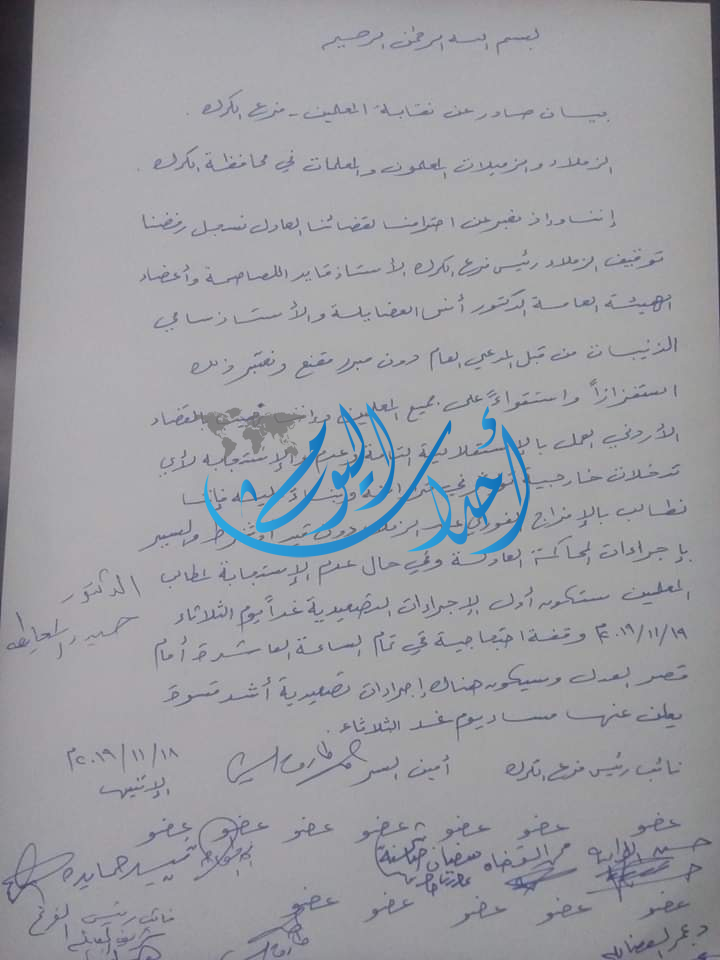 بسم الله الرحمن الرحيم
بيان صادر عن نقابة المعلمين - فرع الكرك .
الزملاء والزميلات المعلمون والمعلمات في محافظة الكرك .
إننا وإذ نعبر عن احترامنا لقضائنا العادل نسجل رفضنا
توقيف الزملاء رئيس فرع الكرك الأستاذ قايد اللصاصمة وأعضاء
الهيئة العامة الدكتور أنس العضايلة والأستاذ سامي
الذنيبات من قبل المدعي العام دون مبرر مقنع ونعتبر ذلك
استفزازاً واستقواءً على جميع المعلمين القضاء
الأردني العمل بالإستقلالية التامة وعدم الإستجابة لأي
تدخلات خارجية فإننا
نطالب بالإفراج الفوري عن الزملاء دون قيد أو شرط والسير
بإجراءات المحاكمة العادلة وفي حال عدم الإستجابة لمطالب
المعلمين ستكون أول الإجراءات التصعيدية غداً يوم الثلاثاء
٢٠١٩/١١/١٩م وقفة احتجاجية في تمام الساعة العاشرة أمام
قصر العدل وسيكون هناك إجراءات تصعيدية أشد قسوة
يعلن عنها مساء يوم غد الثلاثاء .
الدكتور
٢٠١٩/١١/١٨م
الإثنين
نائب رئيس فرع الكرك أمين السر
عضو عضو عضو عضو عضو عضو عضو
عضو عضو عضو عضو عضو
أحداث اليوم